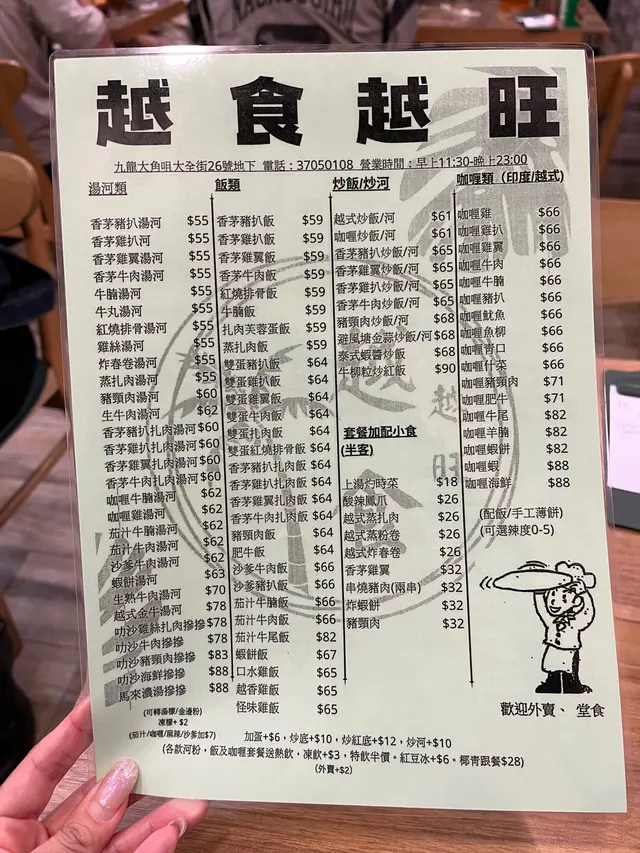 越食越旺
九龍大角咀大全街26號地下 電話：37050108 營業時間：早上11:30-晚上23:00
湯河類
香茅豬扒湯河 $55
香茅雞扒河 $55
香茅雞翼湯河 $55
香茅牛肉湯河 $55
牛腩湯河 $55
牛丸湯河 $55
紅燒排骨湯河 $55
雞絲湯河 $55
炸春卷湯河 $55
蒸扎肉湯河 $55
豬頸肉湯河 $60
生牛肉湯河 $62
香茅豬扒扎肉湯河 $60
香茅雞扒扎肉湯河 $60
香茅雞翼扎肉湯河 $60
香茅牛肉扎肉湯河 $60
咖喱牛腩湯河 $62
咖喱雞湯河 $62
茄汁牛腩湯河 $62
茄汁牛肉湯河 $62
沙爹牛肉湯河 $62
蝦餅湯河 $63
生熟牛肉湯河 $70
越式金牛湯河 $78
叻沙雞絲扎肉摻摻 $78
叻沙牛肉摻摻 $78
叻沙豬頸肉摻摻 $83
叻沙海鮮摻摻 $88
馬來濃湯摻摻 $88
(可轉湯檬/金邊粉)
凍檬+ $2
(茄汁/咖喱/麻辣/沙爹加$7)
飯類
香茅豬扒飯 $59
香茅雞扒飯 $59
香茅雞翼飯 $59
香茅牛肉飯 $59
紅燒排骨飯 $59
牛腩飯 $59
扎肉芙蓉蛋飯 $59
蒸扎肉飯 $59
雙蛋豬扒飯 $64
雙蛋雞扒飯 $64
雙蛋雞翼飯 $64
雙蛋牛肉飯 $64
雙蛋扎肉飯 $64
雙蛋紅燒排骨飯 $64
香茅豬扒扎肉飯 $64
香茅雞扒扎肉飯 $64
香茅雞翼扎肉飯 $64
香茅牛肉扎肉飯 $64
豬頸肉飯 $64
肥牛飯 $64
沙爹牛肉飯 $66
沙爹豬扒飯 $66
茄汁牛腩飯 $66
茄汁牛肉飯 $66
茄汁牛尾飯 $82
蝦餅飯 $67
口水雞飯 $65
越香雞飯 $65
怪味雞飯 $65
炒飯/炒河
越式炒飯/河 $61
咖喱炒飯/河 $61
香茅豬扒炒飯/河 $65
香茅雞翼炒飯/河 $65
香茅雞扒炒飯/河 $65
香茅牛肉炒飯/河 $65
豬頸肉炒飯/河 $68
避風塘金蒜炒飯/河 $68
泰式蝦醬炒飯 $68
牛柳粒炒紅飯 $90
套餐加配小食
(半客)
上湯灼時菜 $18
酸辣鳳爪 $26
越式蒸扎肉 $26
越式蒸粉卷 $26
越式炸春卷 $26
香茅雞翼 $32
串燒豬肉(兩串) $32
炸蝦餅 $32
豬頸肉 $32
咖喱類（印度/越式）
咖喱雞 $66
咖喱雞扒 $66
咖喱雞翼 $66
咖喱牛肉 $66
咖喱牛腩 $66
咖喱豬扒 $66
咖喱魷魚 $66
咖喱魚柳 $66
咖喱青口 $66
咖喱什菜 $66
咖喱豬頸肉 $71
咖喱肥牛 $71
咖喱牛尾 $82
咖喱羊腩 $82
咖喱蝦餅 $82
咖喱蝦 $88
咖喱海鮮 $88
(配飯/手工薄餅)
(可選辣度0-5)
歡迎外賣、 堂食
加蛋+$6，炒底+$10，炒紅底+$12，炒河+$10
(各款河粉，飯及咖喱套餐送熱飲，凍飲+$3，特飲半價。紅豆冰+$6。椰青跟餐$28)
(外賣+$2)